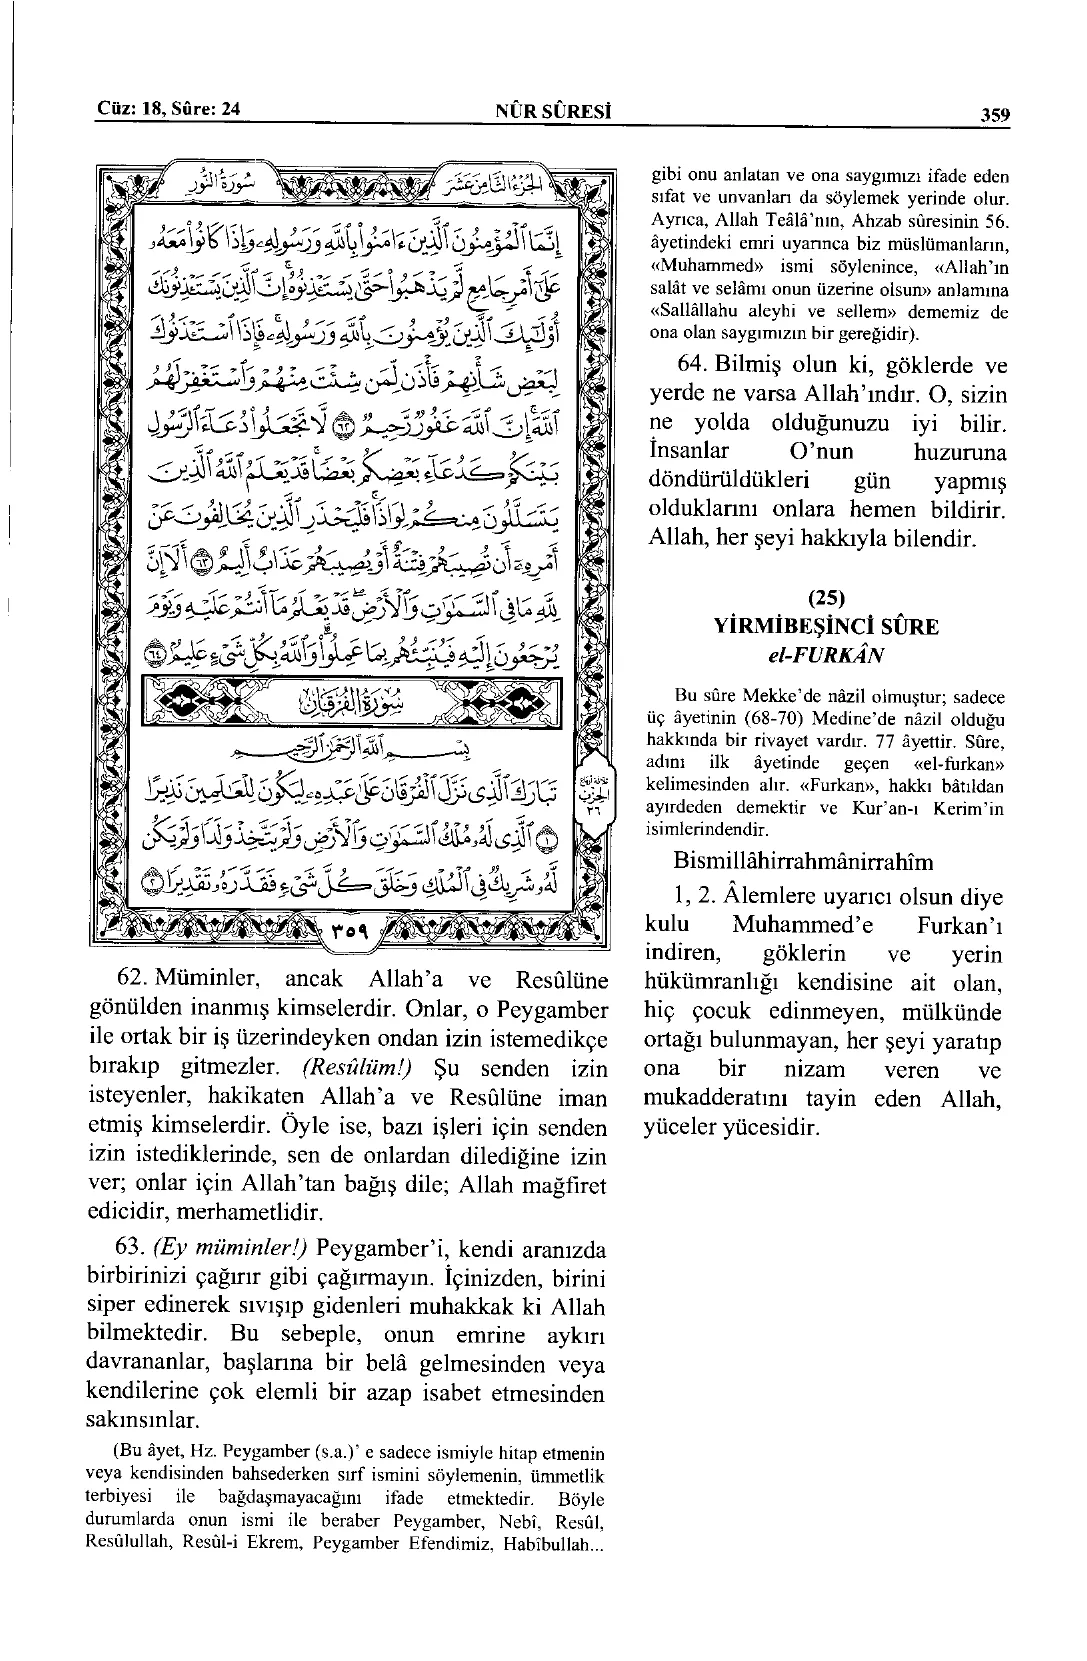 Cüz: 18, Sûre: 24 NÛR SÛRESİ 359
سُورَةُ النُّورِ الجُزْءُ الثَّامِنَ عَشَرَ
إِنَّمَا الْمُؤْمِنُونَ الَّذِينَ ءَامَنُوا بِاللَّهِ وَرَسُولِهِ وَإِذَا كَانُوا مَعَهُ
عَلَىٰ أَمْرٍ جَامِعٍ لَّمْ يَذْهَبُوا حَتَّىٰ يَسْتَـْٔذِنُوهُ إِنَّ الَّذِينَ يَسْتَـْٔذِنُونَكَ
أُولَٰئِكَ الَّذِينَ يُؤْمِنُونَ بِاللَّهِ وَرَسُولِهِ فَإِذَا اسْتَـْٔذَنُوكَ
لِبَعْضِ شَأْنِهِمْ فَأْذَن لِّمَن شِئْتَ مِنْهُمْ وَاسْتَغْفِرْ لَهُمُ
اللَّهَ إِنَّ اللَّهَ غَفُورٌ رَّحِيمٌ ٦٢ لَّا تَجْعَلُوا دُعَاءَ الرَّسُولِ
بَيْنَكُمْ كَدُعَاءِ بَعْضِكُم بَعْضًا قَدْ يَعْلَمُ اللَّهُ الَّذِينَ
يَتَسَلَّلُونَ مِنكُمْ لِوَاذًا فَلْيَحْذَرِ الَّذِينَ يُخَالِفُونَ عَنْ
أَمْرِهِ أَن تُصِيبَهُمْ فِتْنَةٌ أَوْ يُصِيبَهُمْ عَذَابٌ أَلِيمٌ ٦٣ أَلَا إِنَّ
لِلَّهِ مَا فِي السَّمَٰوَٰتِ وَالْأَرْضِ قَدْ يَعْلَمُ مَا أَنتُمْ عَلَيْهِ وَيَوْمَ
يُرْجَعُونَ إِلَيْهِ فَيُنَبِّئُهُم بِمَا عَمِلُوا وَاللَّهُ بِكُلِّ شَيْءٍ عَلِيمٌ ٦٤
سُورَةُ الفُرْقَانِ
بِسْمِ اللَّهِ الرَّحْمَٰنِ الرَّحِيمِ
تَبَارَكَ الَّذِي نَزَّلَ الْفُرْقَانَ عَلَىٰ عَبْدِهِ لِيَكُونَ لِلْعَالَمِينَ نَذِيرًا
١ الَّذِي لَهُ مُلْكُ السَّمَٰوَٰتِ وَالْأَرْضِ وَلَمْ يَتَّخِذْ وَلَدًا وَلَمْ يَكُن
لَّهُ شَرِيكٌ فِي الْمُلْكِ وَخَلَقَ كُلَّ شَيْءٍ فَقَدَّرَهُ تَقْدِيرًا ٢
الحزب
٣٦
٣٥٩
62. Müminler, ancak Allah’a ve Resûlüne
gönülden inanmış kimselerdir. Onlar, o Peygamber
ile ortak bir iş üzerindeyken ondan izin istemedikçe
bırakıp gitmezler. (Resûlüm!) Şu senden izin
isteyenler, hakikaten Allah’a ve Resûlüne iman
etmiş kimselerdir. Öyle ise, bazı işleri için senden
izin istediklerinde, sen de onlardan dilediğine izin
ver; onlar için Allah’tan bağış dile; Allah mağfiret
edicidir, merhametlidir.
63. (Ey müminler!) Peygamber’i, kendi aranızda
birbirinizi çağırır gibi çağırmayın. İçinizden, birini
siper edinerek sıvışıp gidenleri muhakkak ki Allah
bilmektedir. Bu sebeple, onun emrine aykırı
davrananlar, başlarına bir belâ gelmesinden veya
kendilerine çok elemli bir azap isabet etmesinden
sakınsınlar.
(Bu âyet, Hz. Peygamber (s.a.)’ e sadece ismiyle hitap etmenin
veya kendisinden bahsederken sırf ismini söylemenin, ümmetlik
terbiyesi ile bağdaşmayacağını ifade etmektedir. Böyle
durumlarda onun ismi ile beraber Peygamber, Nebî, Resûl,
Resûlullah, Resûl-i Ekrem, Peygamber Efendimiz, Habîbullah...
gibi onu anlatan ve ona saygımızı ifade eden
sıfat ve unvanları da söylemek yerinde olur.
Ayrıca, Allah Teâlâ’nın, Ahzab sûresinin 56.
âyetindeki emri uyarınca biz müslümanların,
«Muhammed» ismi söylenince, «Allah’ın
salât ve selâmı onun üzerine olsun» anlamına
«Sallâllahu aleyhi ve sellem» dememiz de
ona olan saygımızın bir gereğidir).
64. Bilmiş olun ki, göklerde ve
yerde ne varsa Allah’ındır. O, sizin
ne yolda olduğunuzu iyi bilir.
İnsanlar O’nun huzuruna
döndürüldükleri gün yapmış
olduklarını onlara hemen bildirir.
Allah, her şeyi hakkıyla bilendir.
(25)
YİRMİBEŞİNCİ SÛRE
el-FURKÂN
Bu sûre Mekke’de nâzil olmuştur; sadece
üç âyetinin (68-70) Medine’de nâzil olduğu
hakkında bir rivayet vardır. 77 âyettir. Sûre,
adını ilk âyetinde geçen «el-furkan»
kelimesinden alır. «Furkan», hakkı bâtıldan
ayırdeden demektir ve Kur’an-ı Kerim’in
isimlerindendir.
Bismillâhirrahmânirrahîm
1, 2. Âlemlere uyarıcı olsun diye
kulu Muhammed’e Furkan’ı
indiren, göklerin ve yerin
hükümranlığı kendisine ait olan,
hiç çocuk edinmeyen, mülkünde
ortağı bulunmayan, her şeyi yaratıp
ona bir nizam veren ve
mukadderatını tayin eden Allah,
yüceler yücesidir.